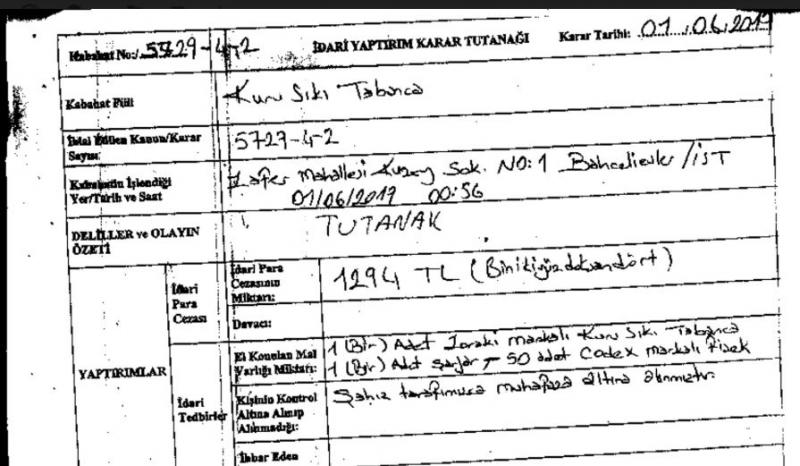 Kabahat No: 5729-4-2
İDARİ YAPTIRIM KARAR TUTANAĞI
Karar Tarihi: 01.06.2019
Kabahat Fiili
Kuru Sıkı Tabanca
İhlal Edilen Kanun/Karar
Sayısı
5729-4-2
Kabahatin İşlendiği
Yer/Tarih ve Saat
Zafer Mahallesi Kuzey Sok. NO:1 Bahçelievler/İST
01/06/2019 00:56
DELİLLER ve OLAYIN
ÖZETİ
TUTANAK
YAPTIRIMLAR
İdari
Para
Cezası
İdari Para
Cezasının
Miktarı:
1294 TL (Binikiyüzdoksandört)
Davacı:
İdari
Tedbirler
El Konulan Mal
Varlığı Miktarı:
1 (Bir) Adet Zoraki markalı Kuru Sıkı Tabanca
1 (Bir) Adet Şarjör 50 adet Codex markalı Fişek
Kişinin Kontrol
Altına Alınıp
Alınmadığı:
Şahıs tarafımızca muhafaza altına alınmıştır.
İhbar Eden